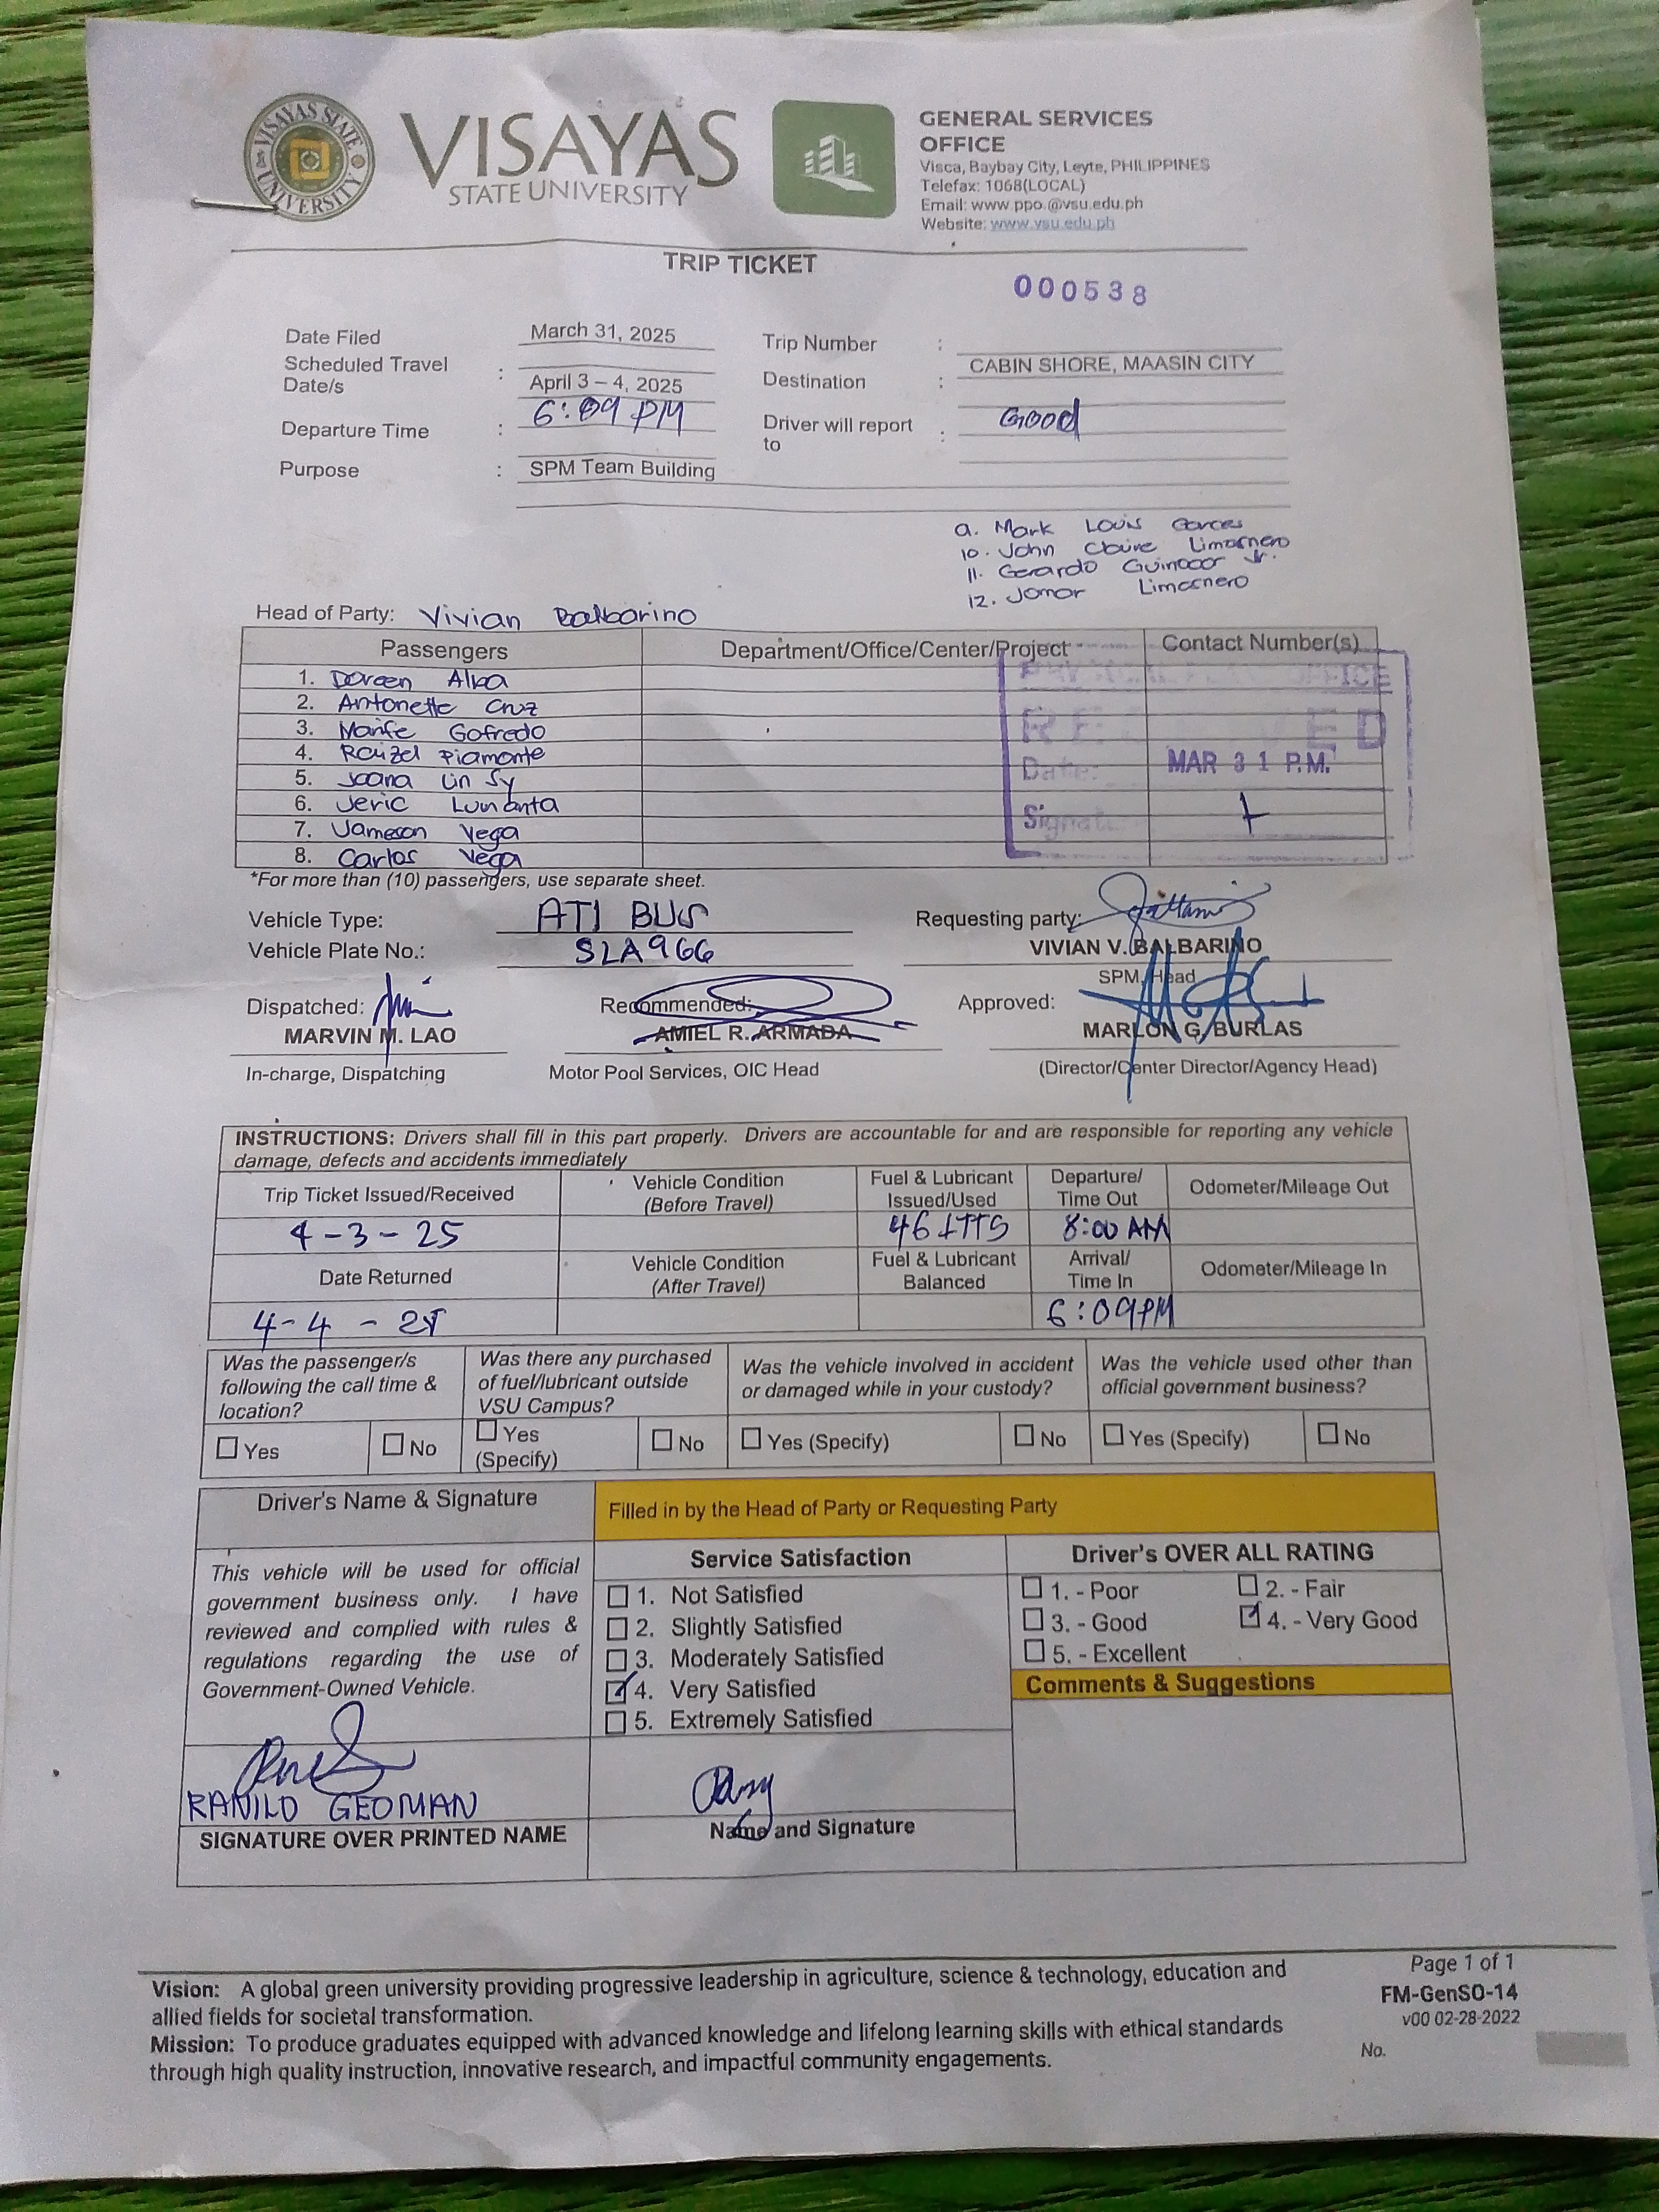 VISAYAS STATE UNIVERSITY
VISAYAS
STATE UNIVERSITY
GENERAL SERVICES
OFFICE
Visca, Baybay City, Leyte, PHILIPPINES
Telefax: 1068(LOCAL)
Email: www.ppo.@vsu.edu.ph
Website: www.vsu.edu.ph
TRIP TICKET
000538
Date Filed March 31, 2025 Trip Number :
Scheduled Travel Date/s : April 3 – 4, 2025 Destination : CABIN SHORE, MAASIN CITY
Departure Time : 6:09 PM Driver will report to : Good
Purpose : SPM Team Building
9. Mark Louis Garces
10. John Claire Limosnero
11. Gerardo Guinocor Jr.
12. Jomar Limosnero
Head of Party: Vivian Balbarino
Passengers Department/Office/Center/Project Contact Number(s)
1. Doreen Alba
2. Antonette Cruz
3. Marife Gofredo
4. Raizel Piamonte
5. Joana Lin Sy
6. Jeric Lumanta
7. Jameson Vega
8. Carlos Vega
OFFICE
Date: MAR 31 P.M.
*For more than (10) passengers, use separate sheet.
Vehicle Type: ATI BUS Requesting party:
Vehicle Plate No.: SLA966 VIVIAN V. BALBARINO
SPM, Head
Dispatched: Recommended: Approved:
MARVIN M. LAO AMIEL R. ARMADA MARLON G. BURLAS
In-charge, Dispatching Motor Pool Services, OIC Head (Director/Center Director/Agency Head)
INSTRUCTIONS: Drivers shall fill in this part properly. Drivers are accountable for and are responsible for reporting any vehicle
damage, defects and accidents immediately
Trip Ticket Issued/Received Vehicle Condition (Before Travel) Fuel & Lubricant Issued/Used Departure/ Time Out Odometer/Mileage Out
4-3-25 46 LTTS 8:00 AM
Date Returned Vehicle Condition (After Travel) Fuel & Lubricant Balanced Arrival/ Time In Odometer/Mileage In
4-4-25 6:09PM
Was the passenger/s following the call time & location? Was there any purchased of fuel/lubricant outside VSU Campus? Was the vehicle involved in accident or damaged while in your custody? Was the vehicle used other than official government business?
☐ Yes ☐ No ☐ Yes (Specify) ☐ No ☐ Yes (Specify) ☐ No ☐ Yes (Specify) ☐ No
Driver's Name & Signature Filled in by the Head of Party or Requesting Party
This vehicle will be used for official
government business only. I have
reviewed and complied with rules &
regulations regarding the use of
Government-Owned Vehicle.
Service Satisfaction
☐ 1. Not Satisfied
☐ 2. Slightly Satisfied
☐ 3. Moderately Satisfied
☑ 4. Very Satisfied
☐ 5. Extremely Satisfied
Driver's OVER ALL RATING
☐ 1. - Poor ☐ 2. - Fair
☐ 3. - Good ☑ 4. - Very Good
☐ 5. - Excellent
Comments & Suggestions
RANILO GEOMAN
SIGNATURE OVER PRINTED NAME Name and Signature
Vision: A global green university providing progressive leadership in agriculture, science & technology, education and
allied fields for societal transformation.
Mission: To produce graduates equipped with advanced knowledge and lifelong learning skills with ethical standards
through high quality instruction, innovative research, and impactful community engagements.
Page 1 of 1
FM-GenSO-14
v00 02-28-2022
No.